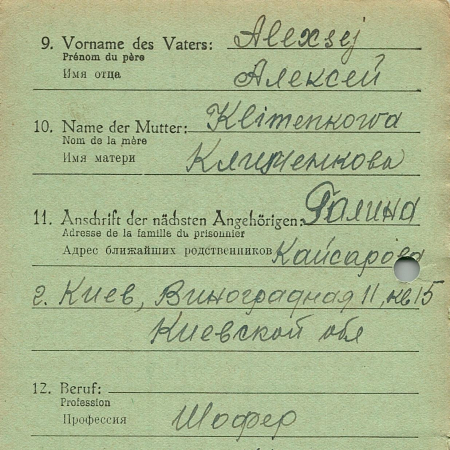 9. Vorname des Vaters: Alexsej
Prénom du père
Имя отца Алексей
10. Name der Mutter: Klimenkowa
Nom de la mère
Имя матери Клименкова
11. Anschrift der nächsten Angehörigen: Галина
Adresse de la famille du prisonnier
Адрес ближайших родственников Кайсарова
г. Киев, Виноградная 11, кв 15
Киевской обл
12. Beruf:
Profession
Профессия Шофер